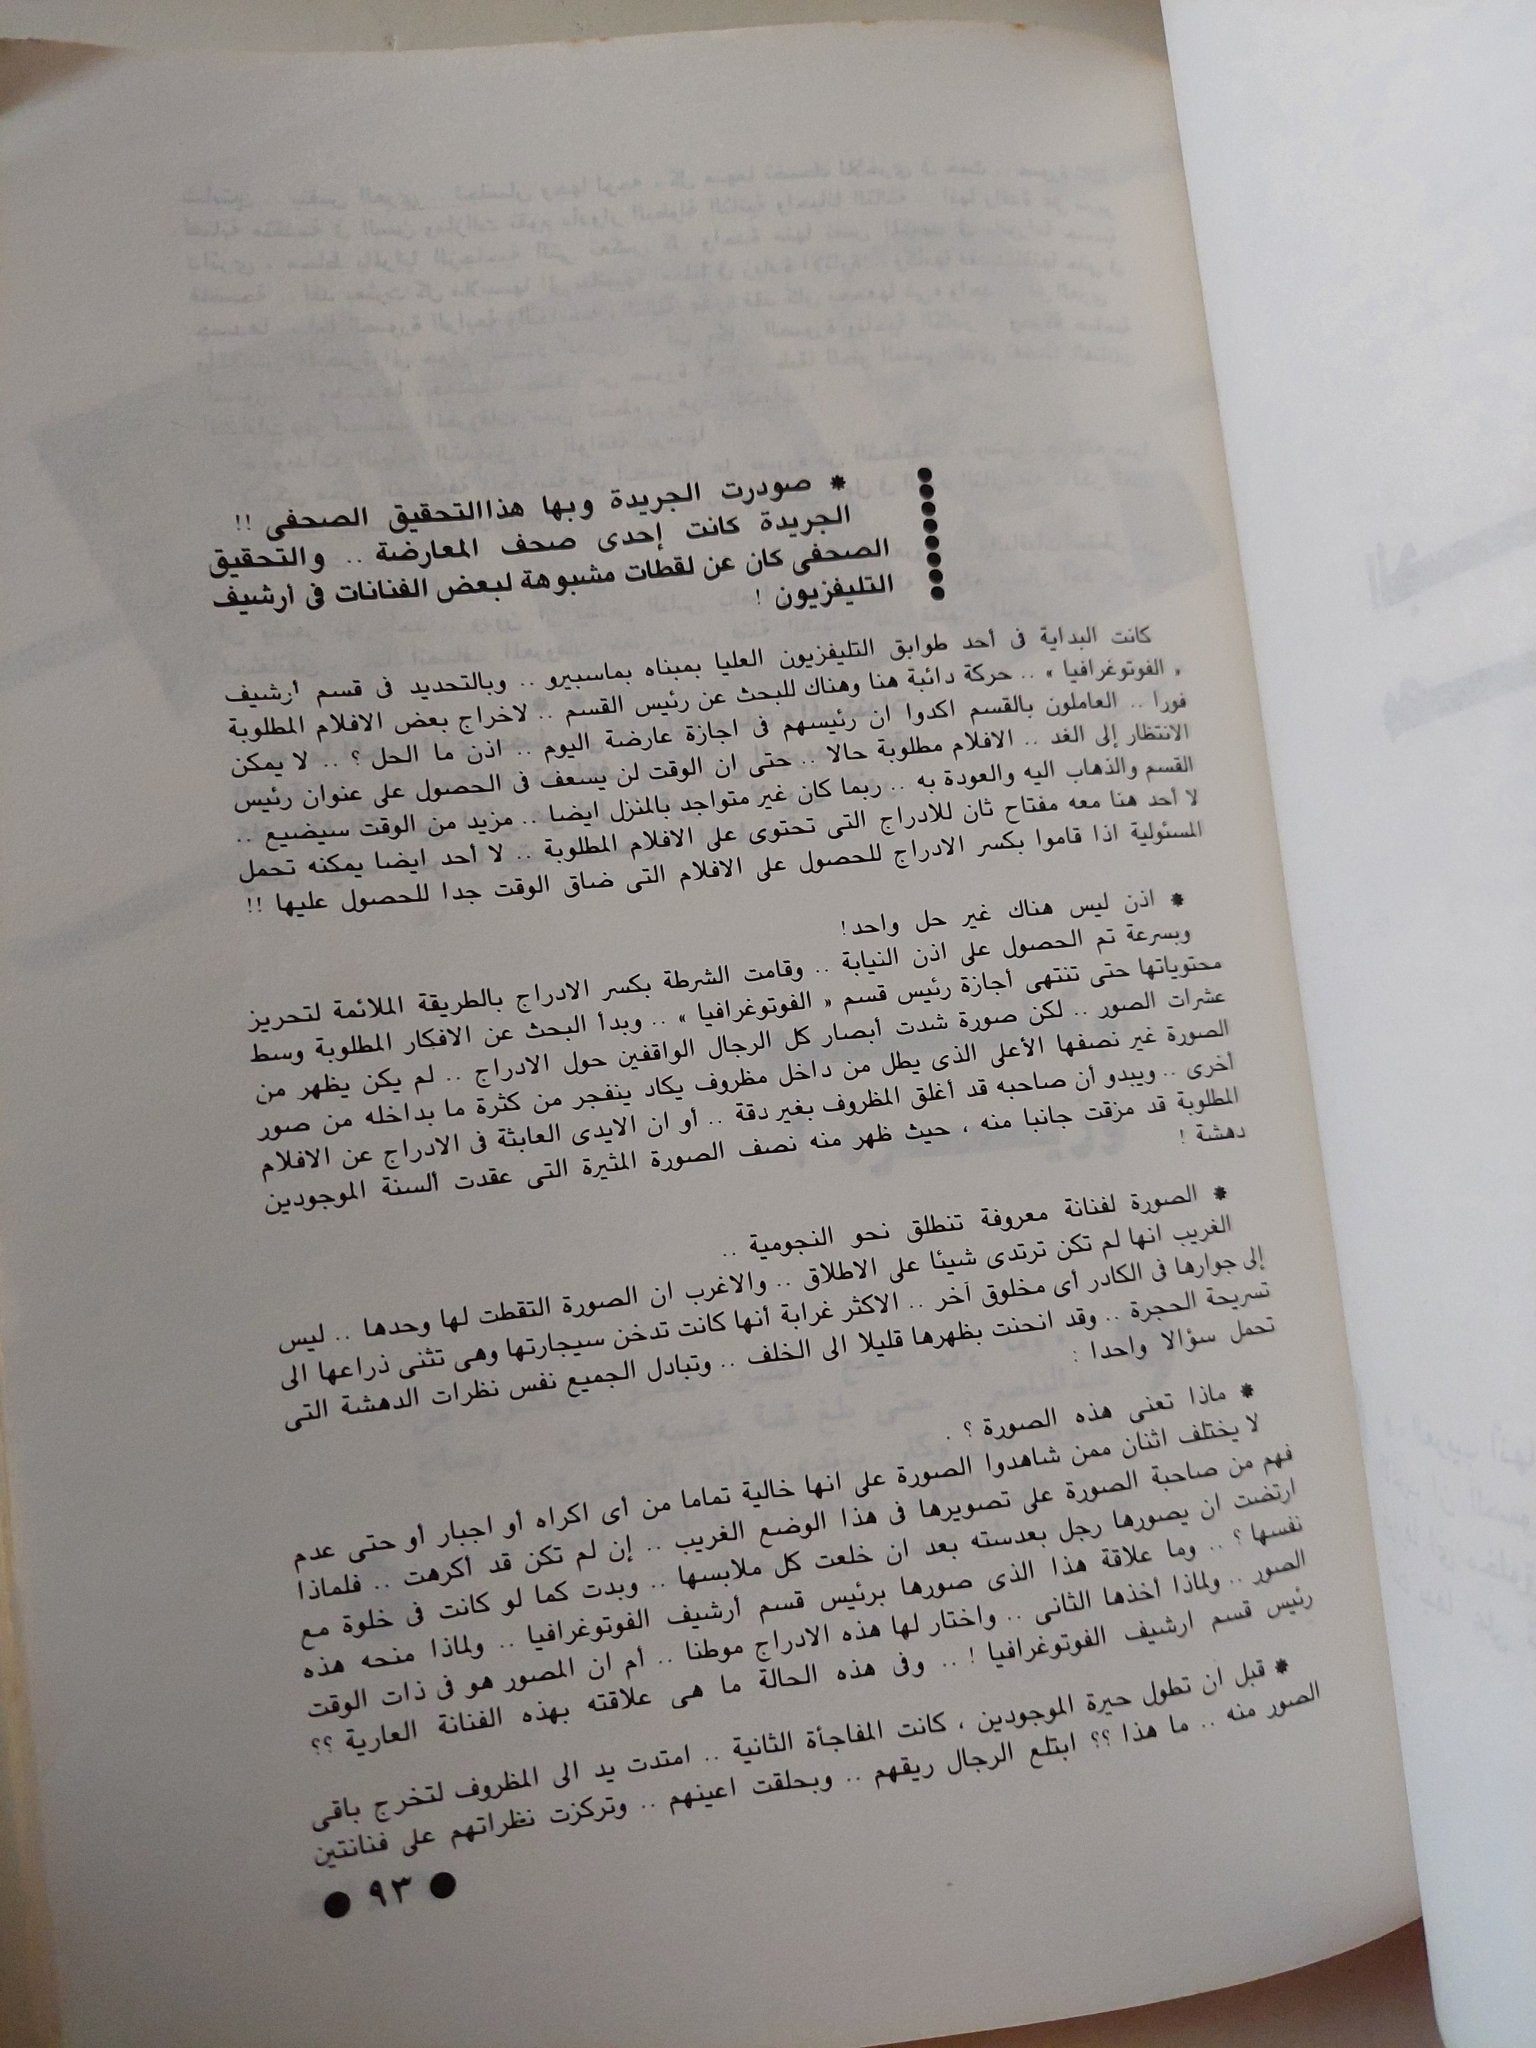 * صودرت الجريدة وبها هذاالتحقيق الصحفى !!
الجريدة كانت إحدى صحف المعارضة .. والتحقيق
الصحفى كان عن لقطات مشبوهة لبعض الفنانات فى أرشيف
التليفزيون !
كانت البداية فى أحد طوابق التليفزيون العليا بمبناه بماسبيرو .. وبالتحديد فى قسم أرشيف
« الفوتوغرافيا » .. حركة دائبة هنا وهناك للبحث عن رئيس القسم .. لاخراج بعض الافلام المطلوبة
فورا .. العاملون بالقسم اكدوا ان رئيسهم فى اجازة عارضة اليوم .. اذن ما الحل ؟ .. لا يمكن
الانتظار إلى الغد .. الافلام مطلوبة حالا .. حتى ان الوقت لن يسعف فى الحصول على عنوان رئيس
القسم والذهاب اليه والعودة به .. ربما كان غير متواجد بالمنزل ايضا .. مزيد من الوقت سيضيع ..
لا أحد هنا معه مفتاح ثان للادراج التى تحتوى على الافلام المطلوبة .. لا أحد ايضا يمكنه تحمل
المسئولية اذا قاموا بكسر الادراج للحصول على الافلام التى ضاق الوقت جدا للحصول عليها !!
* اذن ليس هناك غير حل واحد!
وبسرعة تم الحصول على اذن النيابة .. وقامت الشرطة بكسر الادراج بالطريقة الملائمة لتحريز
محتوياتها حتى تنتهى أجازة رئيس قسم « الفوتوغرافيا » .. وبدأ البحث عن الافكار المطلوبة وسط
عشرات الصور .. لكن صورة شدت أبصار كل الرجال الواقفين حول الادراج .. لم يكن يظهر من
الصورة غير نصفها الأعلى الذى يطل من داخل مظروف يكاد ينفجر من كثرة ما بداخله من صور
أخرى .. ويبدو أن صاحبه قد أغلق المظروف بغير دقة .. أو ان الايدى العابثة فى الادراج عن الافلام
المطلوبة قد مزقت جانبا منه ، حيث ظهر منه نصف الصورة المثيرة التى عقدت ألسنة الموجودين
دهشة !
* الصورة لفنانة معروفة تنطلق نحو النجومية ..
الغريب انها لم تكن ترتدى شيئا على الاطلاق .. والاغرب ان الصورة التقطت لها وحدها .. ليس
إلى جوارها فى الكادر أى مخلوق آخر .. الاكثر غرابة أنها كانت تدخن سيجارتها وهى تثنى ذراعها الى
تسريحة الحجرة .. وقد انحنت بظهرها قليلا الى الخلف .. وتبادل الجميع نفس نظرات الدهشة التى
تحمل سؤالا واحدا :
* ماذا تعنى هذه الصورة ؟ .
لا يختلف اثنان ممن شاهدوا الصورة على انها خالية تماما من أى اكراه أو اجبار أو حتى عدم
فهم من صاحبة الصورة على تصويرها فى هذا الوضع الغريب .. إن لم تكن قد أكرهت .. فلماذا
ارتضت ان يصورها رجل بعدسته بعد ان خلعت كل ملابسها .. وبدت كما لو كانت فى خلوة مع
نفسها ؟ .. وما علاقة هذا الذى صورها برئيس قسم أرشيف الفوتوغرافيا .. ولماذا منحه هذه
الصور .. ولماذا أخذها الثانى .. واختار لها هذه الادراج موطنا .. أم ان المصور هو فى ذات الوقت
رئيس قسم ارشيف الفوتوغرافيا ! .. وفى هذه الحالة ما هى علاقته بهذه الفنانة العارية ؟؟
* قبل ان تطول حيرة الموجودين ، كانت المفاجأة الثانية .. امتدت يد الى المظروف لتخرج باقى
الصور منه .. ما هذا ؟؟ ابتلع الرجال ريقهم .. وبحلقت اعينهم .. وتركزت نظراتهم على فنانتين
● ٩٣ ●